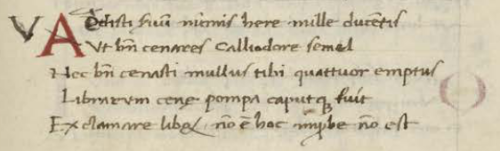 ADdisti suū nūmis here mille ducētis
Vt bn̄ cenares Calliodore semel
Nec bn̄ cenasti mullus tibi quattuor emptus
Librarum cene pompa caputq; fuit
Exclamare nō ē hoc īprobe nō est